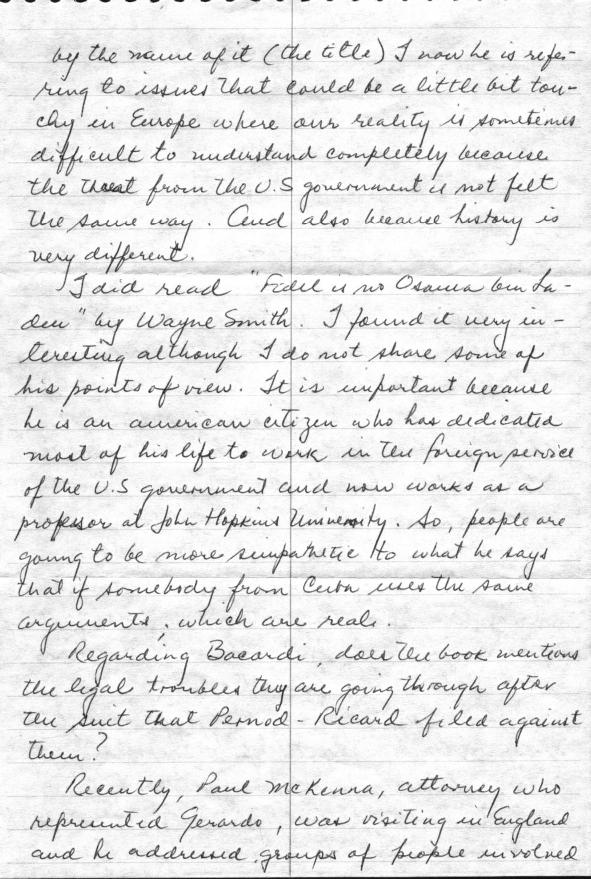 by the name of it (the title) I now he is refer-
ring to issues that could be a little bit tou-
chy in Europe where our reality is sometimes
difficult to understand completely because
the threat from the U.S government is not felt
the same way. And also because history is
very different.
I did read "Fidel is no Osama bin La-
den" by Wayne Smith. I found it very in-
teresting although I do not share some of
his points of view. It is important because
he is an american citizen who has dedicated
most of his life to work in the foreign service
of the U.S government and now works as a
professor at John Hopkins University. So, people are
going to be more simpathetic to what he says
that if somebody from Cuba uses the same
arguments, which are real.
Regarding Bacardi, does the book mentions
the legal troubles they are going through after
the suit that Pernod-Ricard filed against
them?
Recently, Paul McKenna, attorney who
represented Gerardo, was visiting in England
and he addressed groups of people involved